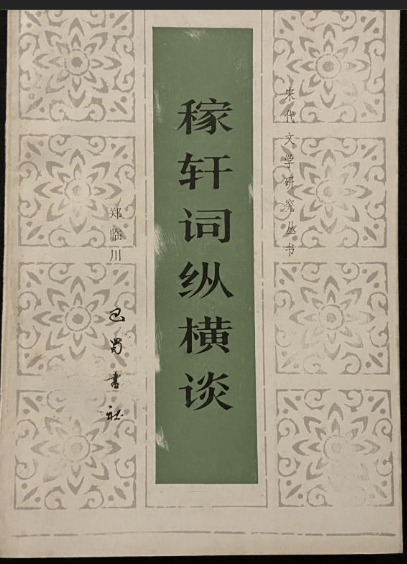 宋代文学研究丛书
稼轩词纵横谈
郑临川
巴蜀书社